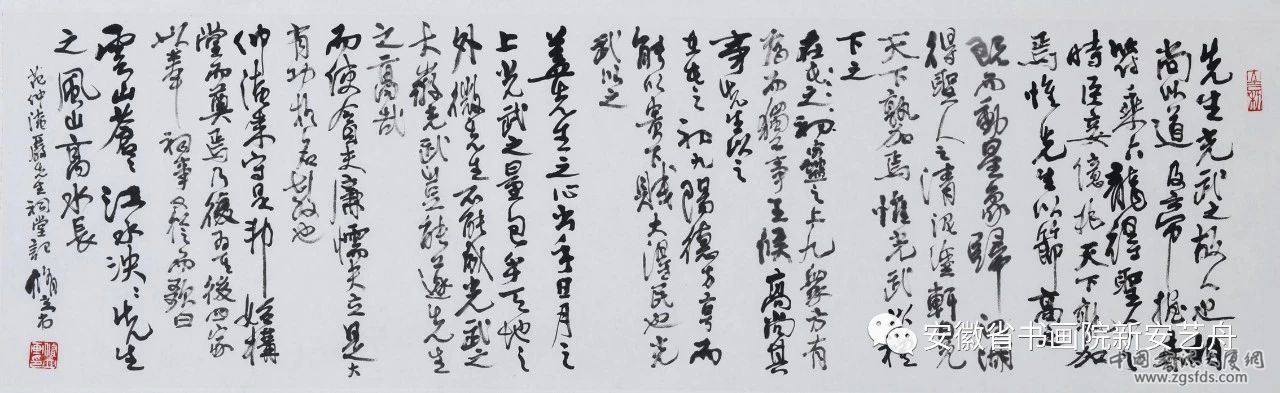 先生光武之故人也相
尚以道及帝握赤
符乘六龍得聖人之
時臣妾億兆天下孰加
焉惟先生以節高之
既而動星象歸江湖
得聖人之清泥塗軒冕
天下孰加焉惟光武以禮
下之
在蠱之上九衆方有
為而獨不事王侯高尚其
事先生以之
在屯之初九陽德方亨而
能以貴下賤大得民也光
武以之
蓋先生之心出乎日月之
上光武之量包乎天地之
外微先生不能成光武之
大微光武豈能遂先生
之高哉
而使貪夫廉懦夫立是大
有功於名教也
仲淹來守是邦始構
堂而奠焉乃復為其後四家
以奉祠事又從而歌曰
雲山蒼〻江水泱〻先生
之風山高水長
范仲淹嚴先生祠堂記
安徽省书画院新安艺舟
www.zgsfds.com